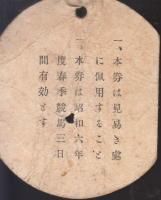 一、本券は見易き處
に佩用すること
一、本券は昭和六年
度春季競馬三日
間有効とす